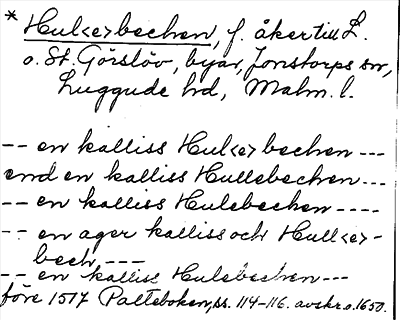 * Hul<e>bechen, f. åker till L.
o. St. Görslöv, byar, Jonstorps sn,
Luggude hd, Malm. l.
-- en kalliss Hul<e>bechen ---
end en kalliss Hullebechen ---
-- en kalliss Hulebechen ----
-- en ager kalliss och Hull<e>-
bech ---
-- en kalliss Hulebechen ---
före 1517 Palteboken, ss. 114-116. avskr. o. 1650.